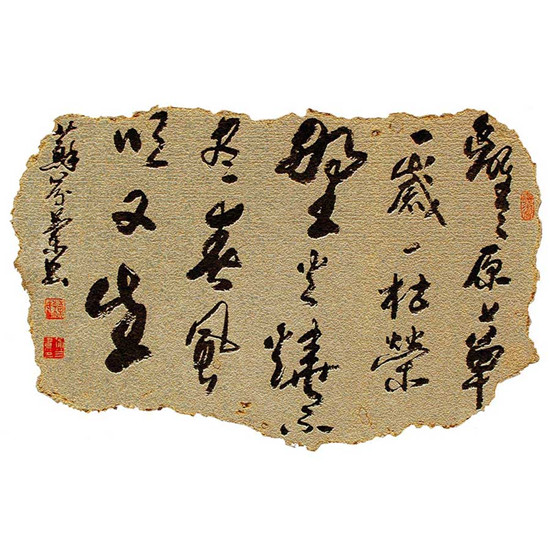 離々原上草
一歲一枯榮
野火燒不
尽春風
吹又生
蘇芬